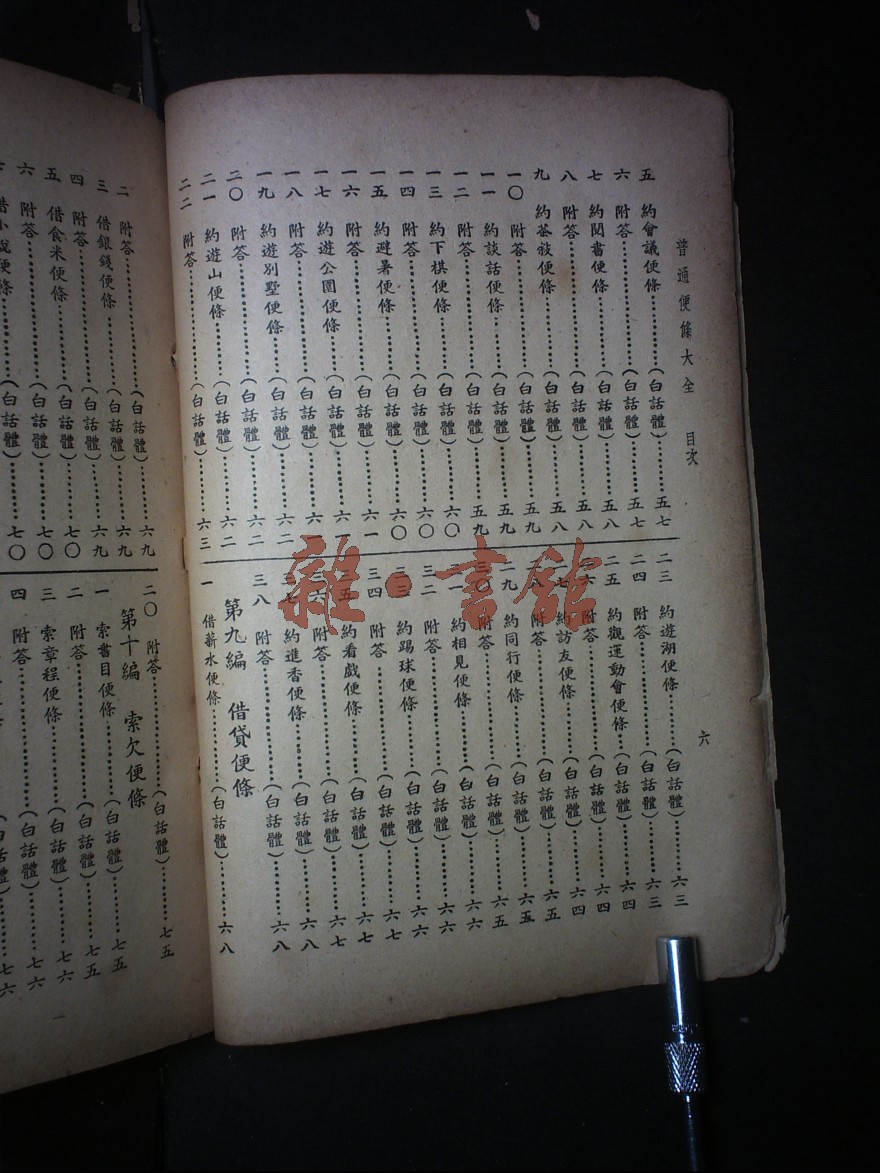 普通便條大全 目次
六
五 約會議便條……(白話體)……五七
六 附答……(白話體)……五七
七 約閱書便條……(白話體)……五八
八 附答……(白話體)……五八
九 約茶敍便條……(白話體)……五八
一〇 附答……(白話體)……五九
一一 約談話便條……(白話體)……五九
一二 附答……(白話體)……五九
一三 約下棋便條……(白話體)……六〇
一四 附答……(白話體)……六〇
一五 約避暑便條……(白話體)……六〇
一六 附答……(白話體)……六一
一七 約遊公園便條……(白話體)……六一
一八 附答……(白話體)……六
一九 約遊別墅便條……(白話體)……六二
二〇 附答……(白話體)……六二
二一 約遊山便條……(白話體)……六二
二二 附答……(白話體)……六三
二三 約遊湖便條……(白話體)……六三
二四 附答……(白話體)……六三
二五 約觀運動會便條……(白話體)……六四
二六 附答……(白話體)……六四
二七 約訪友便條……(白話體)……六四
二八 附答……(白話體)……六五
二九 約同行便條……(白話體)……六五
三〇 附答……(白話體)……六五
三一 約相見便條……(白話體)……六六
三二 附答……(白話體)……六六
三三 約踢球便條……(白話體)……六六
三四 附答……(白話體)……六七
三五 約看戲便條……(白話體)……六七
三六 附答……(白話體)……六七
三七 約進香便條……(白話體)……六八
三八 附答……(白話體)……六八
第九編 借貸便條
一 借薪水便條……(白話體)……六八
二 附答……(白話體)……六九
三 借銀錢便條……(白話體)……六九
四 附答……(白話體)……七〇
五 借食米便條……(白話體)……七〇
六 附答……(白話體)……七〇
借小說便條……(白話體)
二〇 附答……(白話體)……七五
第十編 索欠便條
一 索書目便條……(白話體)……七五
二 附答……(白話體)……七五
三 索章程便條……(白話體)……七六
四 附答……(白話體)……七六
雜·書館